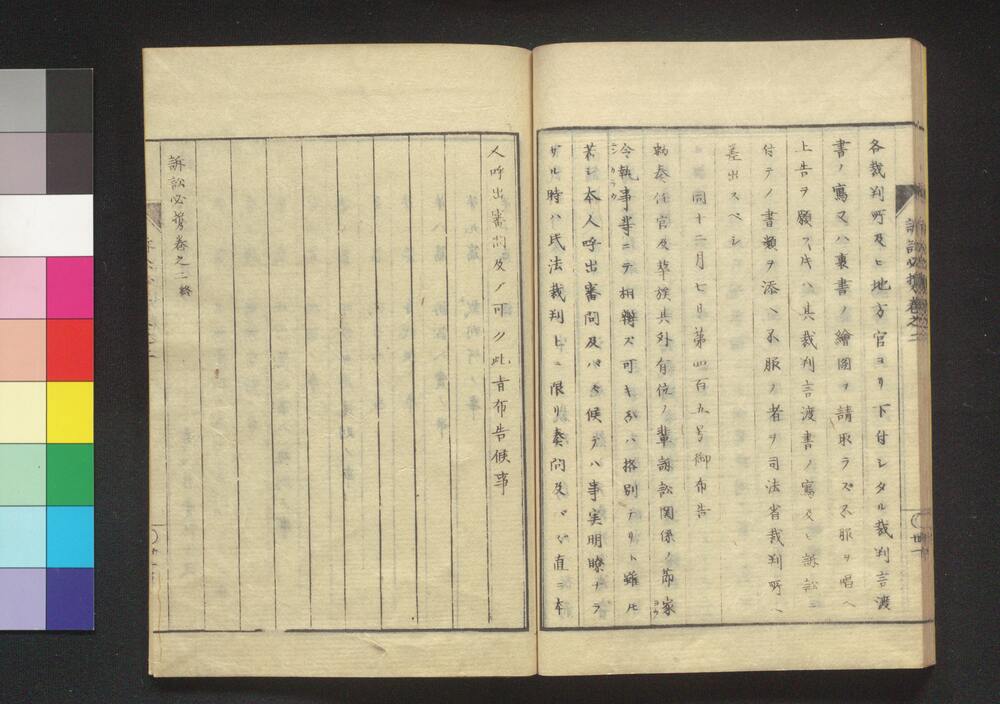 各裁判所及ヒ地方官ヨリ下付シタル裁判言渡
書ノ寫又ハ裏書ノ繪圖ヲ請取ラス不服ヲ唱ヘ
上告ヲ願フ片ハ其裁判言渡書ノ寫及ヒ訴訟ニ
付テノ書類ヲ添ヘ不服ノ者ヲ司法省裁判所ヘ
差出スベシ
同十二月七日第四百五号御布告
勅奏任官及華族其外有位ノ輩訴訟関係ノ節家
令執事等ニテ相辨ス可キ分ハ格別ナリト雖圧
若シ本人呼出審問及ハス候テハ事実明瞭ナラ
サル時ハ民法裁判上ニ限リ奏問及ハズ直ニ本
人呼出審問及ノ可ク此旨布告候事
訴訟必携巻之二終
訴訟必携巻之二